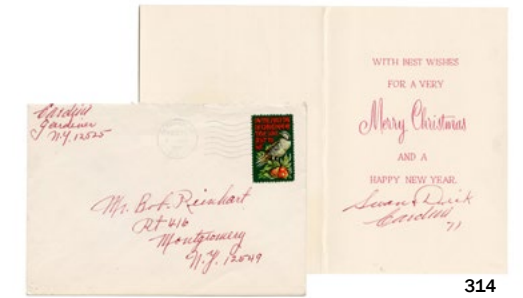 Cardiff
Gardiner
N.Y. 12525
Mr. Bob Reinhart
Rt 416
Montgomery
N.Y. 12549
WITH BEST WISHES
FOR A VERY
Merry Christmas
AND A
HAPPY NEW YEAR.
Susan & Dick
Cardiff
71
314